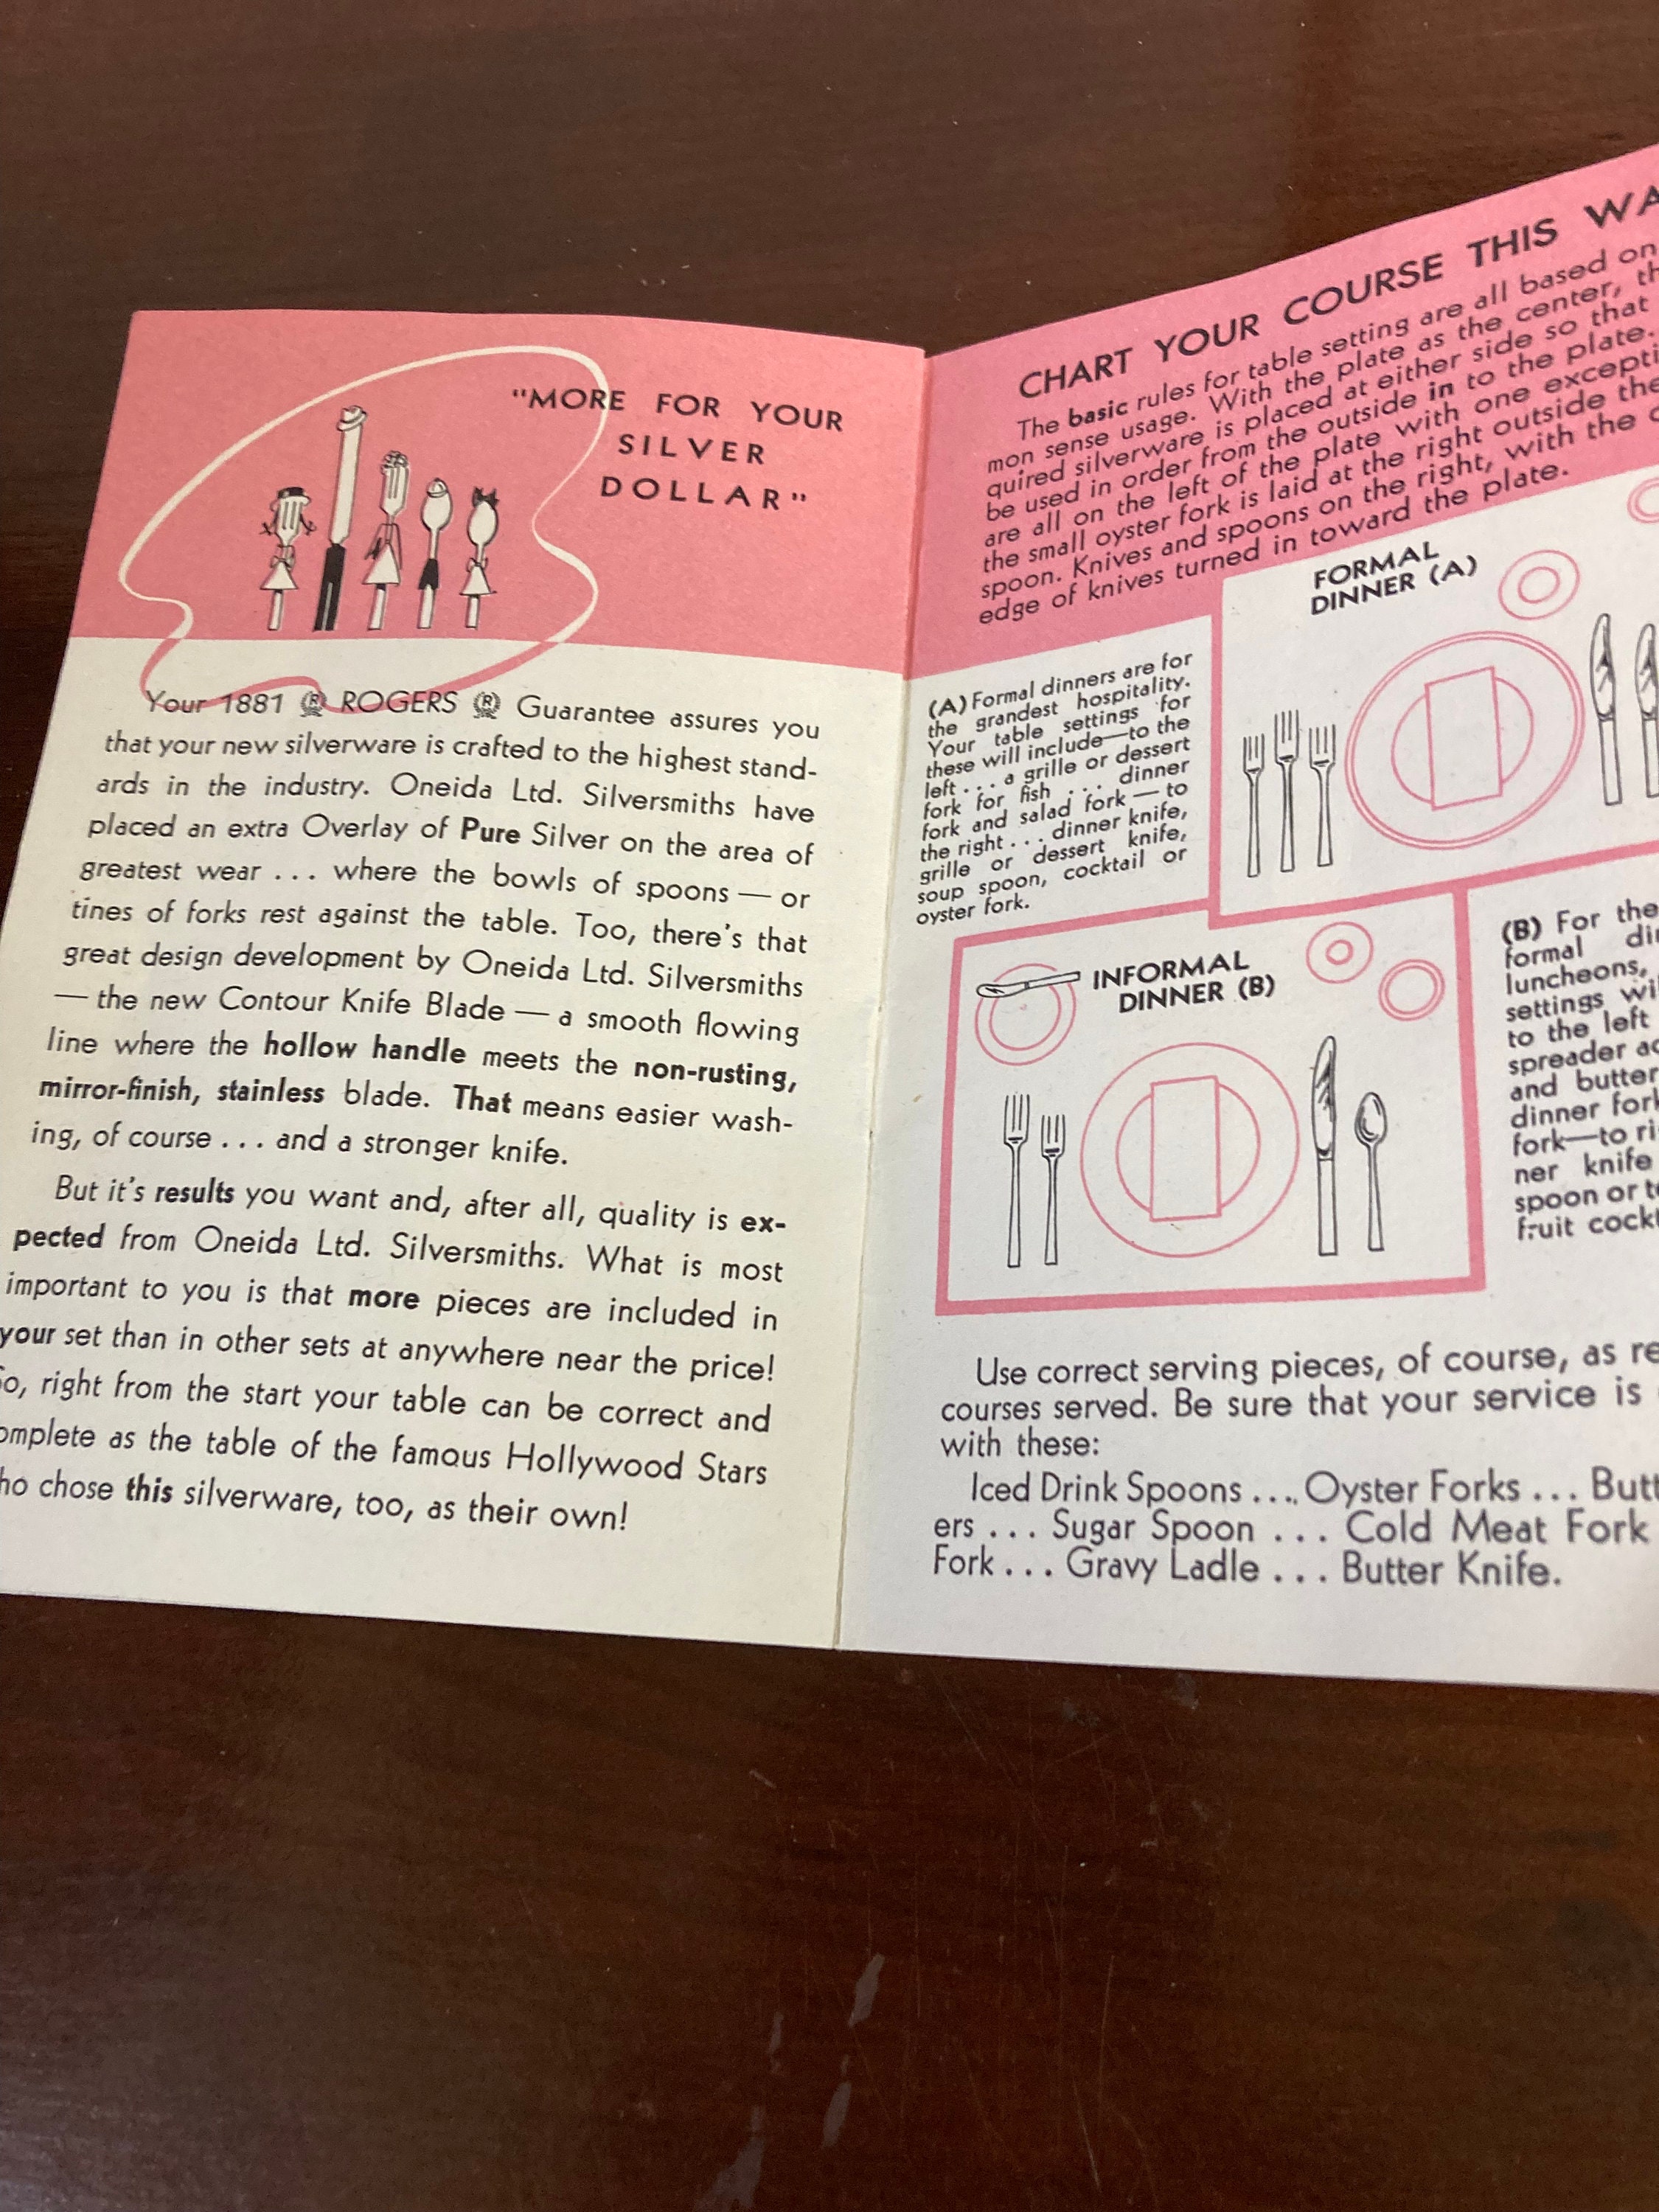 "MORE FOR YOUR
SILVER
DOLLAR"
Your 1881 ® ROGERS ® Guarantee assures you
that your new silverware is crafted to the highest stand-
ards in the industry. Oneida Ltd. Silversmiths have
placed an extra Overlay of Pure Silver on the area of
greatest wear ... where the bowls of spoons — or
tines of forks rest against the table. Too, there's that
great design development by Oneida Ltd. Silversmiths
— the new Contour Knife Blade — a smooth flowing
line where the hollow handle meets the non-rusting,
mirror-finish, stainless blade. That means easier wash-
ing, of course ... and a stronger knife.
But it's results you want and, after all, quality is ex-
pected from Oneida Ltd. Silversmiths. What is most
important to you is that more pieces are included in
your set than in other sets at anywhere near the price!
o, right from the start your table can be correct and
omplete as the table of the famous Hollywood Stars
ho chose this silverware, too, as their own!
CHART YOUR COURSE THIS WA
The basic rules for table setting are all based on
mon sense usage. With the plate as the center, th
quired silverware is placed at either side so that
be used in order from the outside in to the plate.
are all on the left of the plate with one excepti
the small oyster fork is laid at the right outside the
spoon. Knives and spoons on the right, with the c
edge of knives turned in toward the plate.
FORMAL
DINNER (A)
(A) Formal dinners are for
the grandest hospitality.
Your table settings for
these will include—to the
left ... a grille or dessert
fork for fish ... dinner
fork and salad fork — to
the right ... dinner knife,
grille or dessert knife,
soup spoon, cocktail or
oyster fork.
INFORMAL
DINNER (B)
(B) For the
formal din
luncheons,
settings wi
to the left
spreader ac
and butter
dinner fork
fork—to ri
ner knife
spoon or te
fruit cockt
Use correct serving pieces, of course, as re
courses served. Be sure that your service is
with these:
Iced Drink Spoons .... Oyster Forks ... Butt
ers ... Sugar Spoon ... Cold Meat Fork
Fork ... Gravy Ladle ... Butter Knife.